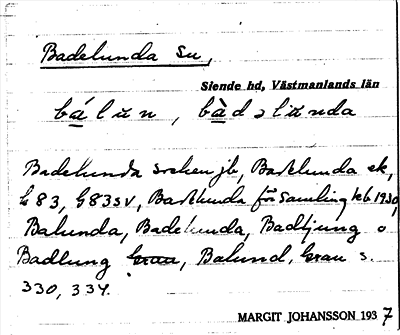 Badelunda sn,
Siende hd, Västmanlands län
bálun, bàdəlunda
Badelunda socken jb, Badelunda ek,
G 83, G83SV, Badelunda församling kb 1930,
Balunda, Badelunda, Badljung o
Badlung Grau, Balund, Grau s.
330, 334.
MARGIT JOHANSSON 1937